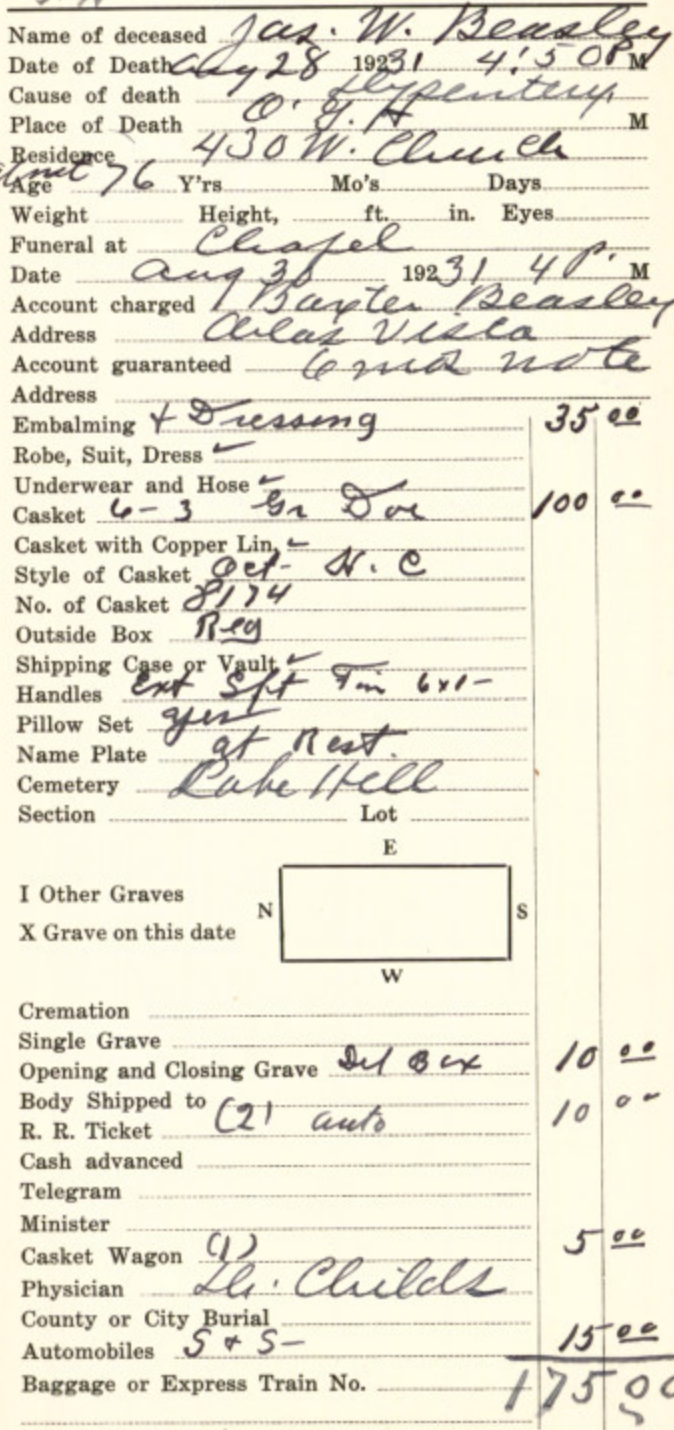 Name of deceased Jas. W. Beasley
Date of Death Aug 28 19231 4:50 P M
Cause of death Dysentery
Place of Death O. G. H M
Residence 430 W. Church
Age about 76 Y'rs Mo's Days
Weight Height, ft. in. Eyes
Funeral at Chapel
Date Aug 30 19231 4 P. M
Account charged Baxter Beasley
Address Vista
Account guaranteed 6 mos note
Address
Embalming + Dressing 35 00
Robe, Suit, Dress
Underwear and Hose
Casket 6-3 Gr Doe 100 00
Casket with Copper Lin.
Style of Casket Oct- H. C
No. of Casket 8174
Outside Box Reg
Shipping Case or Vault
Handles Ext Sft Tin 6x1-
Pillow Set yes
Name Plate at Rest.
Cemetery Lake Hill
Section Lot
E
I Other Graves
N S
X Grave on this date
W
Cremation
Single Grave
Opening and Closing Grave Del Box 10 00
Body Shipped to
R. R. Ticket (2) auto 10 00
Cash advanced
Telegram
Minister
Casket Wagon (1) 5 00
Physician Dr. Childs
County or City Burial
Automobiles S + S- 15 00
Baggage or Express Train No. 175 00